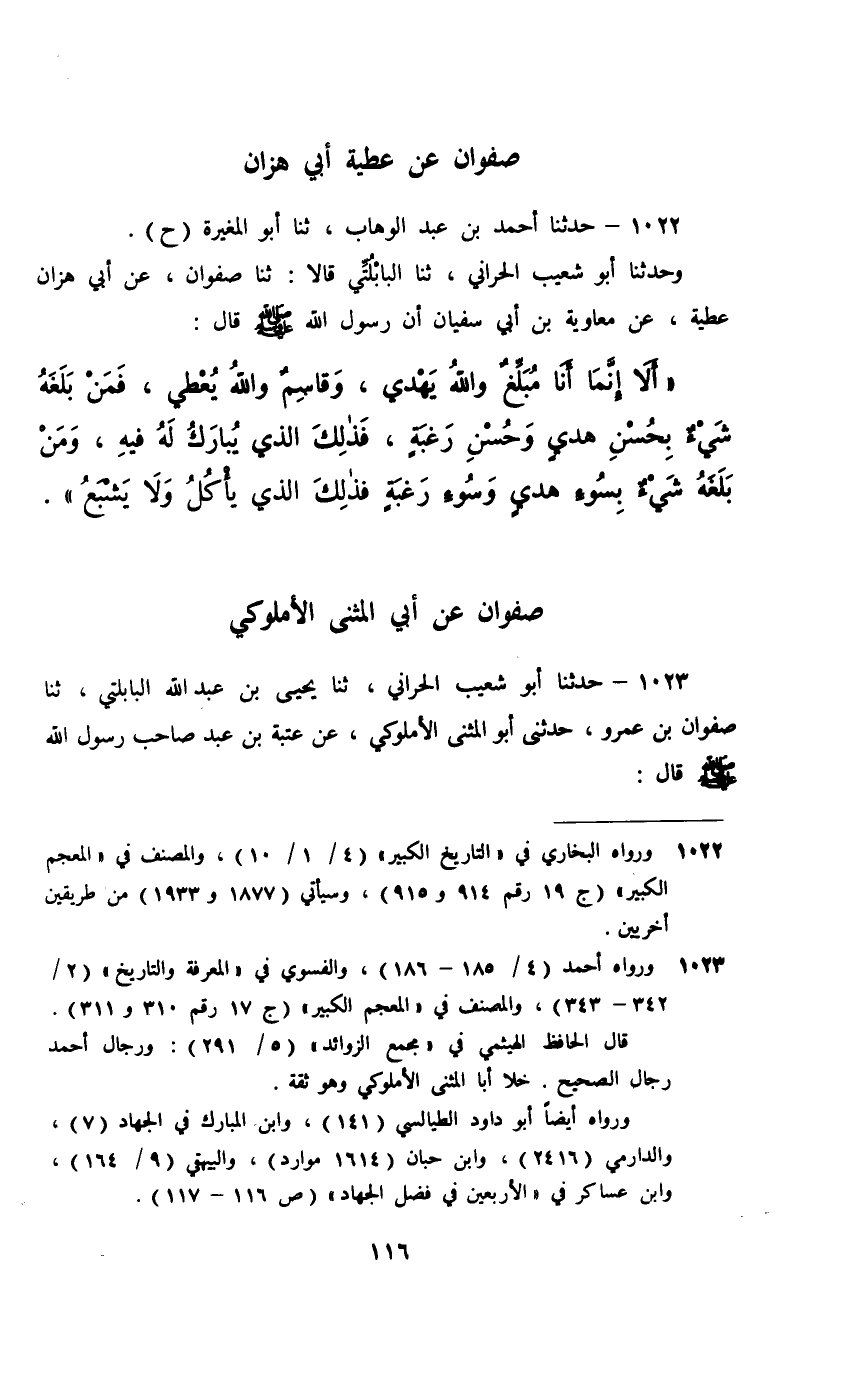 صفوان عن عطية أبي هزان
١٠٢٢ – حدثنا أحمد بن عبد الوهاب ، ثنا أبو المغيرة (ح) .
وحدثنا أبو شعيب الحراني ، ثنا البابْلُتِّي قالا : ثنا صفوان ، عن أبي هزان
عطية ، عن معاوية بن أبي سفيان أن رسول الله ﷺ قال :
« أَلَا إِنَّمَا أَنَا مُبَلِّغٌ واللهُ يَهْدي ، وَقاسِمٌ واللهُ يُعْطي ، فَمَنْ بَلَغَهُ
شَيْءٌ بِحُسْنِ هديٍ وَحُسْنِ رَغبَةٍ ، فَذٰلِكَ الذي يُبارَكُ لَهُ فيهِ ، وَمَنْ
بَلَغَهُ شَيْءٌ بِسُوءِ هديٍ وَسُوءِ رَغبَةٍ فذٰلِكَ الذي يأْكُلُ وَلَا يَشْبَعُ » .
صفوان عن أبي المثنى الأملوكي
١٠٢٣ – حدثنا أبو شعيب الحراني ، ثنا يحيى بن عبد الله البابلتي ، ثنا
صفوان بن عمرو ، حدثنى أبو المثنى الأملوكي ، عن عتبة بن عبد صاحب رسول الله
ﷺ قال :
١٠٢٢ ورواه البخاري في « التاريخ الكبير » (٤ / ١ / ١٠) ، والمصنف في « المعجم
الكبير » (ج ١٩ رقم ٩١٤ و ٩١٥) ، وسيأتي (١٨٧٧ و ١٩٣٣) من طريقين
أخريين .
١٠٢٣ ورواه أحمد (٤ / ١٨٥ – ١٨٦) ، والفسوي في « المعرفة والتاريخ » (٢ /
٣٤٢ – ٣٤٣) ، والمصنف في « المعجم الكبير » (ج ١٧ رقم ٣١٠ و ٣١١) .
قال الحافظ الهيثمي في « مجمع الزوائد » (٥ / ٢٩١) : ورجال أحمد
رجال الصحيح . خلا أبا المثنى الأملوكي وهو ثقة .
ورواه أيضاً أبو داود الطيالسي (١٤١) ، وابن المبارك في الجهاد (٧) ،
والدارمي (٢٤١٦) ، وابن حبان (١٦١٤ موارد) ، والبيهقي (٩ / ١٦٤) ،
وابن عساكر في « الأربعين في فضل الجهاد » (ص ١١٦ – ١١٧) .
١١٦